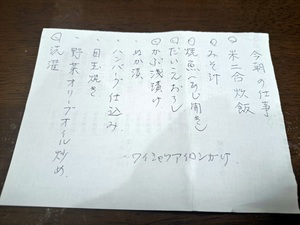 今朝の仕事
◎米二合炊飯
◎みそ汁
◎焼魚(あじ開き)
◎だいこんおろし
◎かぶ浅漬け
・ぬか漬
・ハンバーグ仕込み
・目玉焼き
・野菜オリーブオイル炒め
◎洗濯
ーワイシャツアイロンがけ